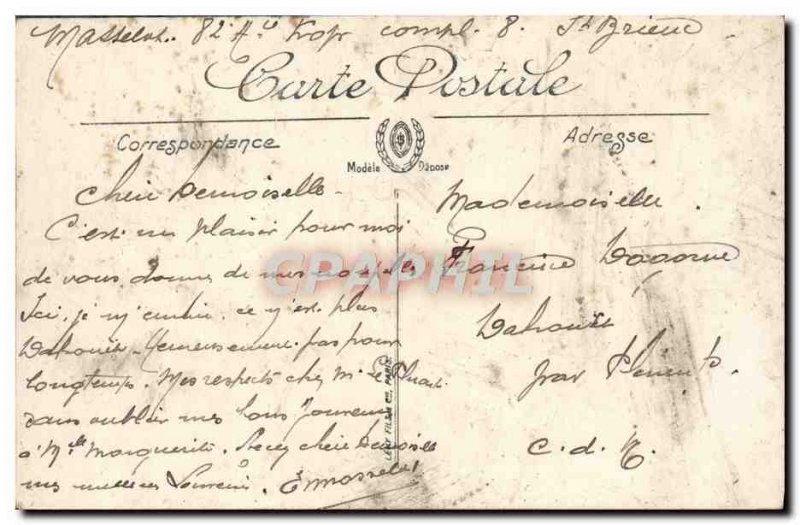 Masselot. 82 Art. Compl. 8. St Brieuc
Carte Postale
Correspondance
Adresse
Modèle Déposé
Chère Demoiselle
C'est un plaisir pour moi
de vous donner de mes nouvelles
Ici, je m'ennuie, ce n'est plus
Dahouët. Heureusement pas pour
longtemps. Mes respects chez Mr le
sans oublier mes bons
à Mlle Marguerite. Recevez chère Demoiselle
mes meilleurs Souvenirs. E Masselot
Mademoiselle
Francine Dagorne
Dahouët
par Pléneuf
C.d.N.
LEVY FILS & Cie PARIS
CPAPHIL